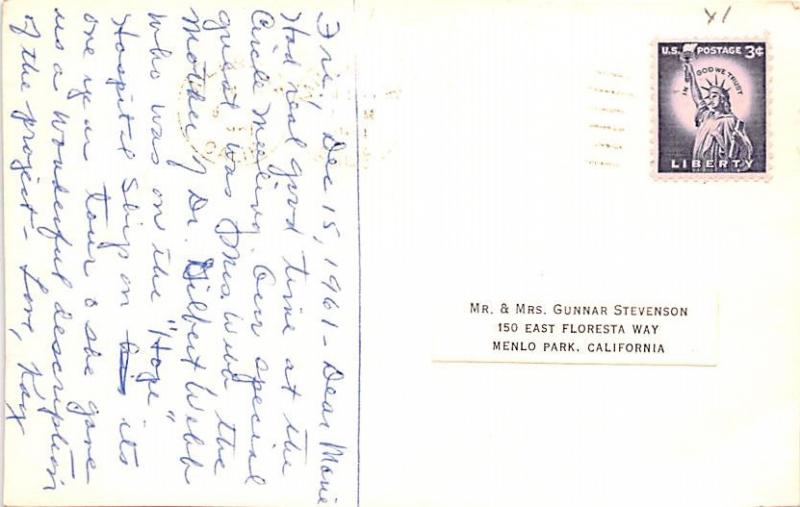 Fri, Dec 15, 1961 - Dear Marie
Had real good time at the
Circle Meeting. Our special
guest was Mrs. Webb the
Mother of Dr. Gilbert Webb
who was on the "Hope"
Hospital Ship on its
one year tour & she gave
us a wonderful description
of the project - Love, Kay
X1
U.S. POSTAGE 3¢
IN GOD WE TRUST
LIBERTY
MR. & MRS. GUNNAR STEVENSON
150 EAST FLORESTA WAY
MENLO PARK, CALIFORNIA